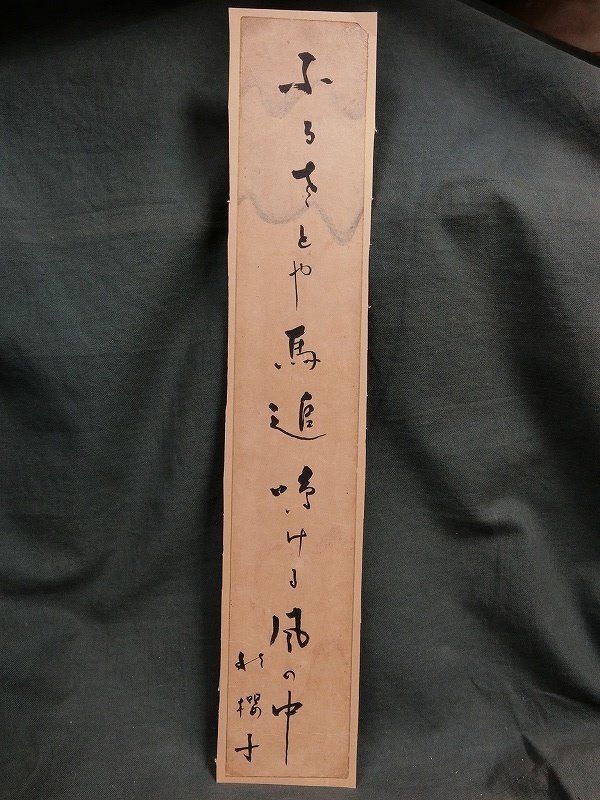 ふるさとや馬追鳴ける風の中
秋櫻子